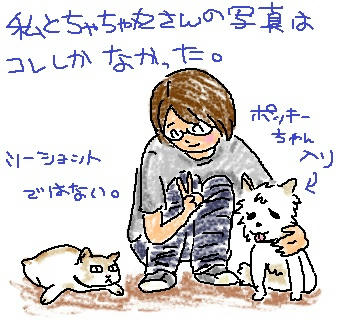 私とちゃちゃ丸さんの写真は
コレしか なかった。
ポッキー
ちゃん
入り
ツーショット
ではない。